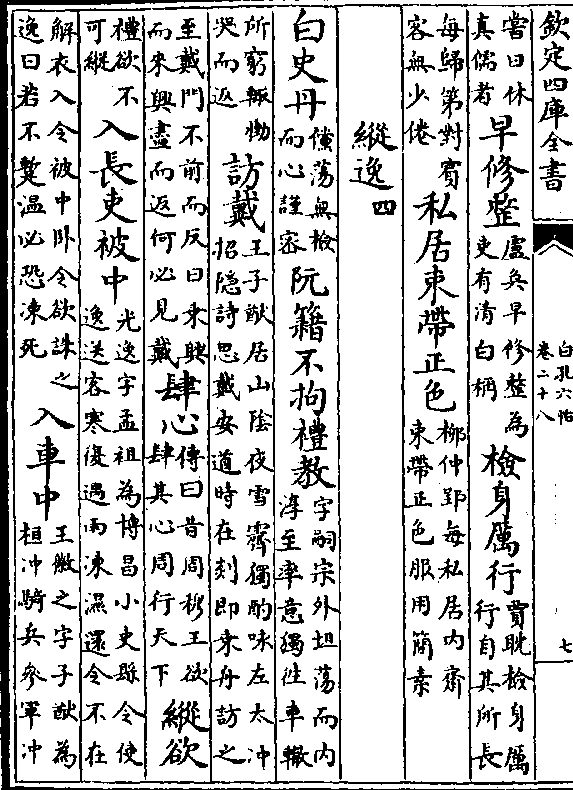 欽定四庫全書
白孔六帖
卷二十八
七
嘗曰休真儒者 早修整 盧奐早修整為吏有清白稱 檢身厲行 賈耽檢身厲行自其所長
每歸第對賓客無少倦 私居束帶正色 柳仲郢每私居內齋束帶正色服用簡素
縱逸四
白史丹 儻蕩無檢而心謹密 阮籍不拘禮教 字嗣宗外坦蕩而內淳至率意獨徃車轍
所窮輙慟哭而返 訪戴 王子猷居山陰夜雪霽獨酌咏左太冲招隱詩思戴安道時在剡即乘舟訪之
至戴門不前而反曰乘興而來興盡而返何必見戴 肆心 傳曰昔周穆王欲肆其心周行天下 縱欲
禮欲不可縱 入長吏被中 光逸字孟祖為博昌小吏縣令使逸送客寒復遇雨凍濕還令不在
解衣入令被中卧令欲誅之逸曰若不蹔溫必恐凍死 入車中 王徽之字子猷為桓冲騎兵參軍冲